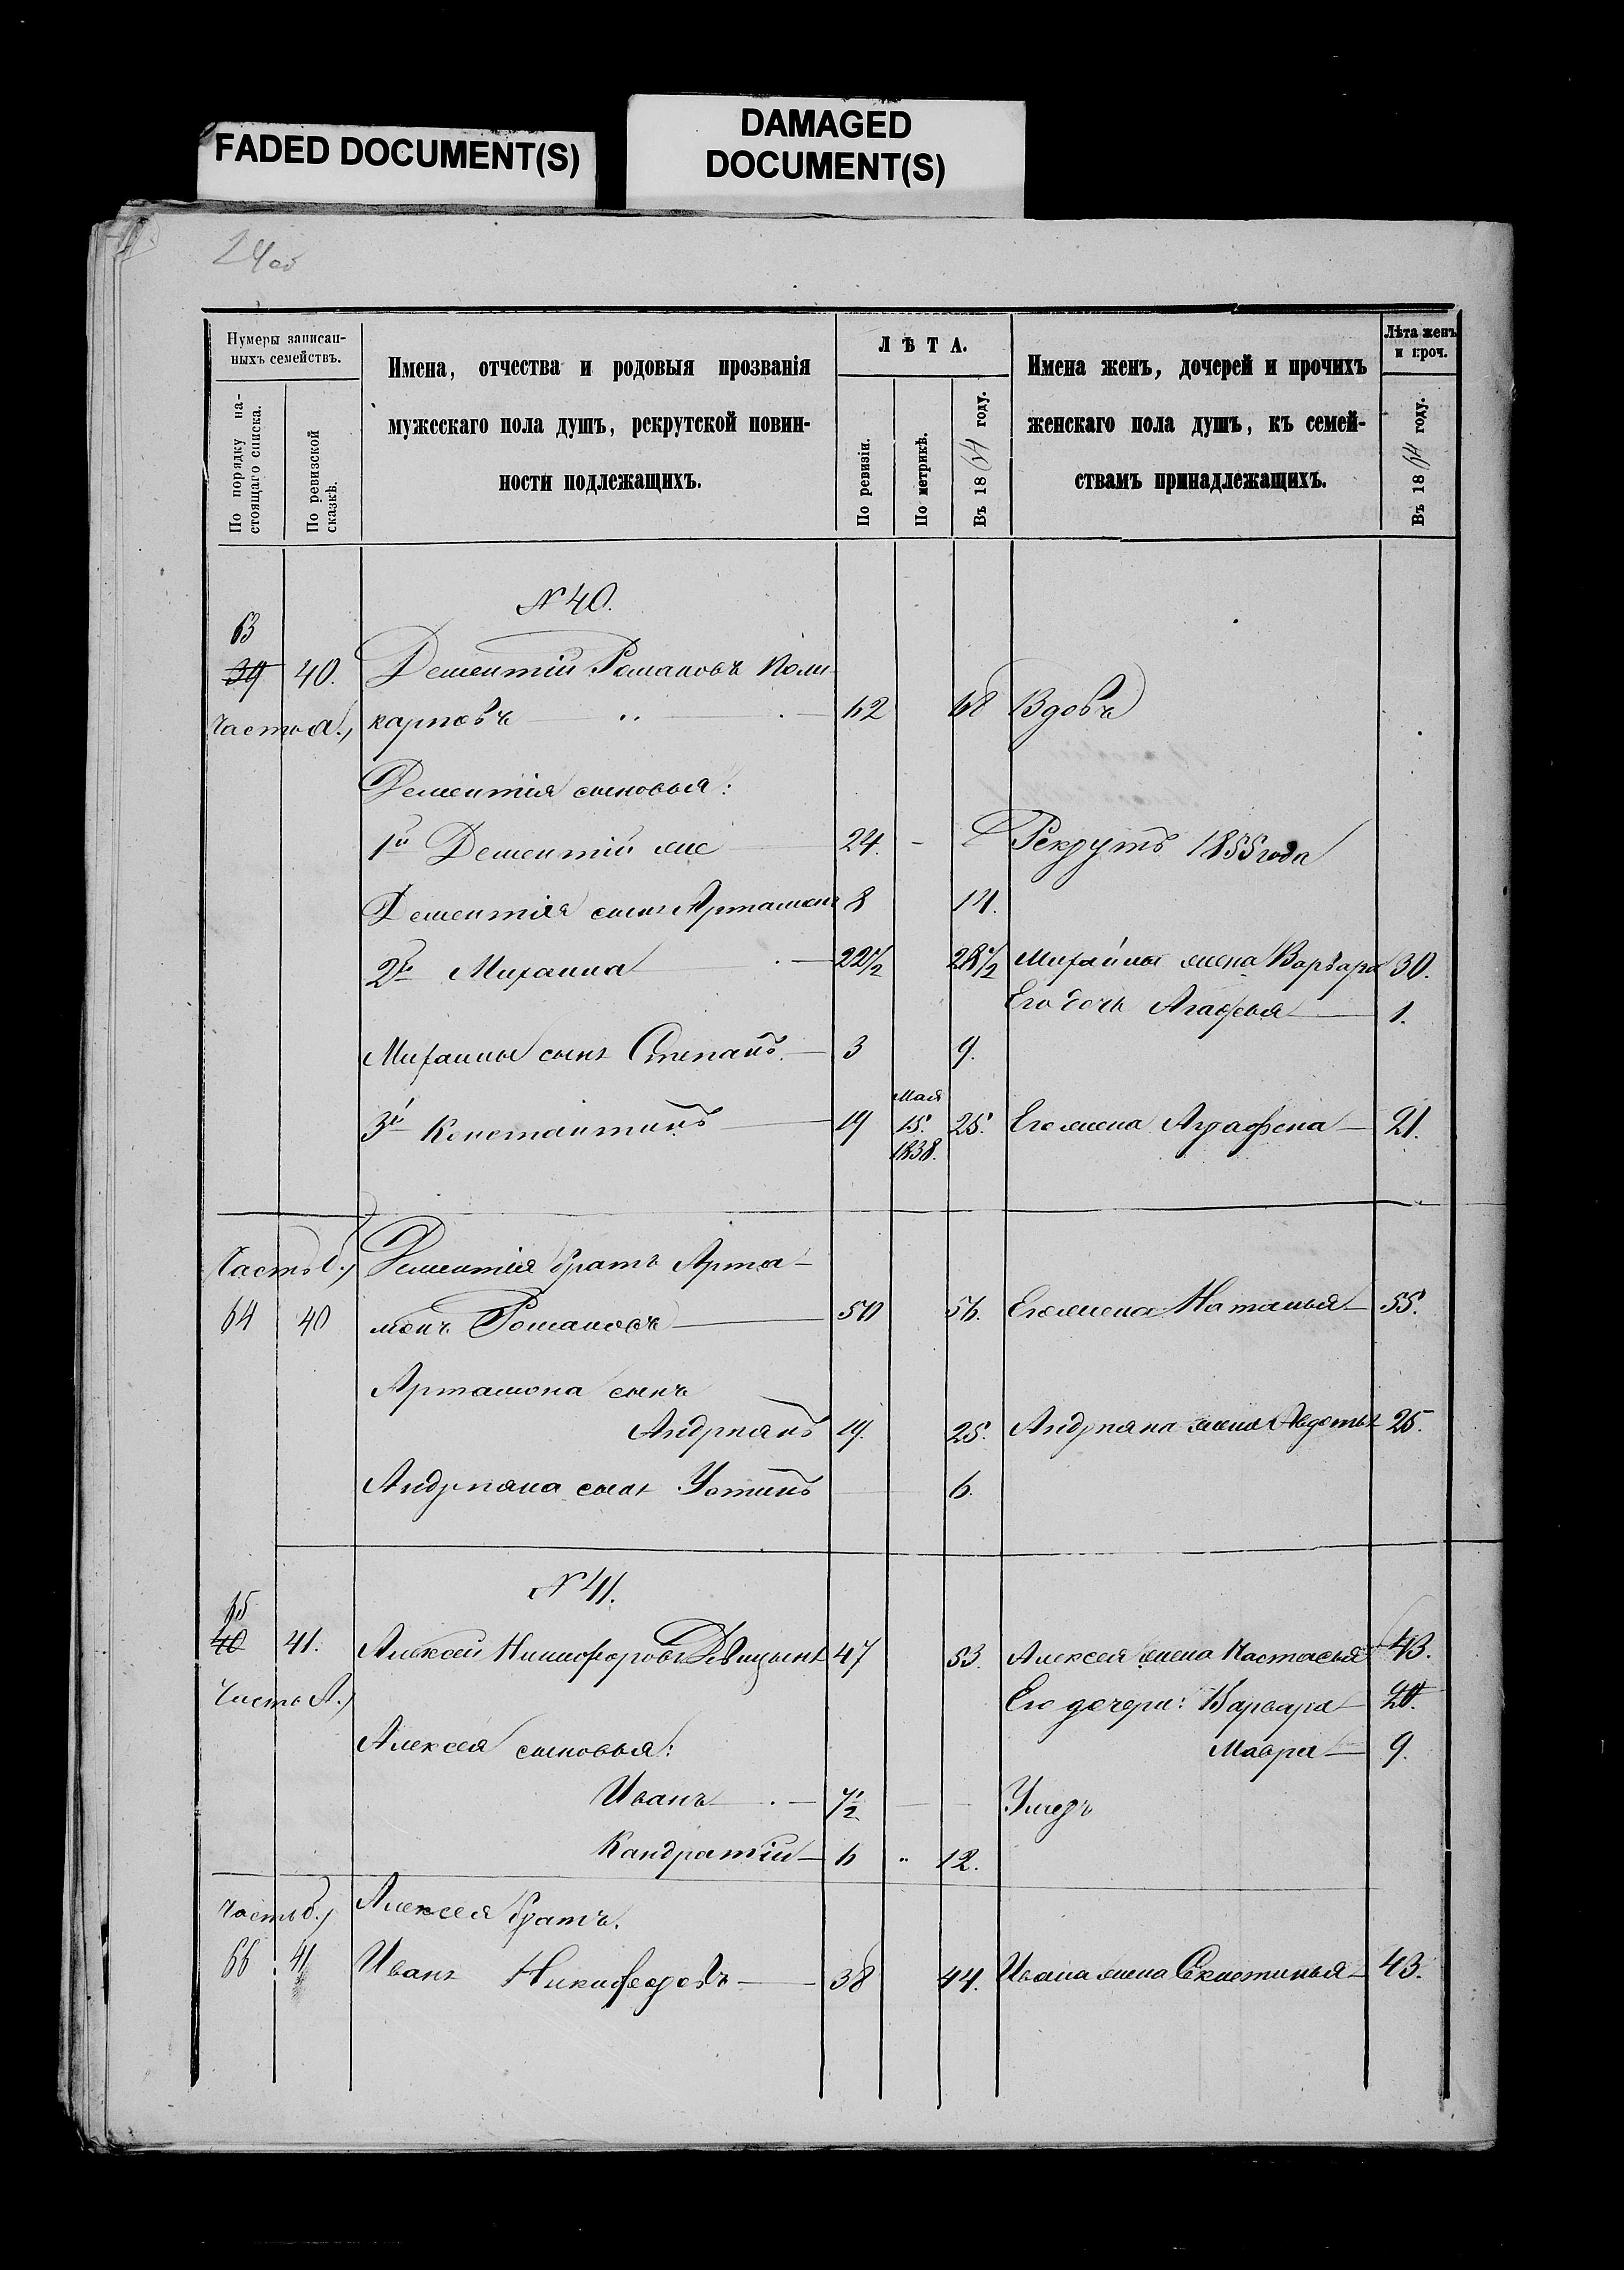 FADED DOCUMENT(S)
DAMAGED
DOCUMENT(S)
24об
Нумеры записан-
ныхъ семействъ.
По порядку на-
стоящаго списка.
По ревизской
сказкѣ.
Имена, отчества и родовыя прозванія
мужескаго пола душъ, рекрутской повин-
ности подлежащихъ.
ЛѢТА.
По ревизіи.
По метрикѣ.
Въ 1864 году.
Имена женъ, дочерей и прочихъ
женскаго пола душъ, къ семей-
ствамъ принадлежащихъ.
Лѣта женъ
и проч.
Въ 1864 году.
№ 40.
63
39 40. Дементій Романовъ Поли-
Часть а., карповъ 62 68 Вдовъ
Дементія сыновья:
1й Дементій же 24. - Рекрутъ 1855 года
Дементія сынъ Артамонъ 8 14.
2й Михаила 22 1/2 28 1/2 Михайлы жена Варвара 30.
Его дочь Агафья 1.
Михаилы сынъ Степанъ. 3 9.
3й Константинъ 19 Мая 15. 1838. 25. Его жена Аграфена 21.
Часть б., Дементія братъ Арта-
64 40 монъ Романовъ 50 56. Его жена Наталья 55.
Артамона сынъ
Андріянъ 19. 25. Андріяна жена Авдотья 25.
Андріяна сынъ Устинъ 6.
№ 41.
65
40 41. Алексей Никифоровъ 47 53. Алексея жена Настасья 43.
Часть А., Его дочери: Варвара 20.
Алексея сыновья: Мавра 9.
Иванъ 7 1/2 Умеръ
Кандратій 6 " 12.
Часть б., Алексея братъ.
66 41 Иванъ Никифоровъ 38 44. Ивана жена Секлетинья 43.